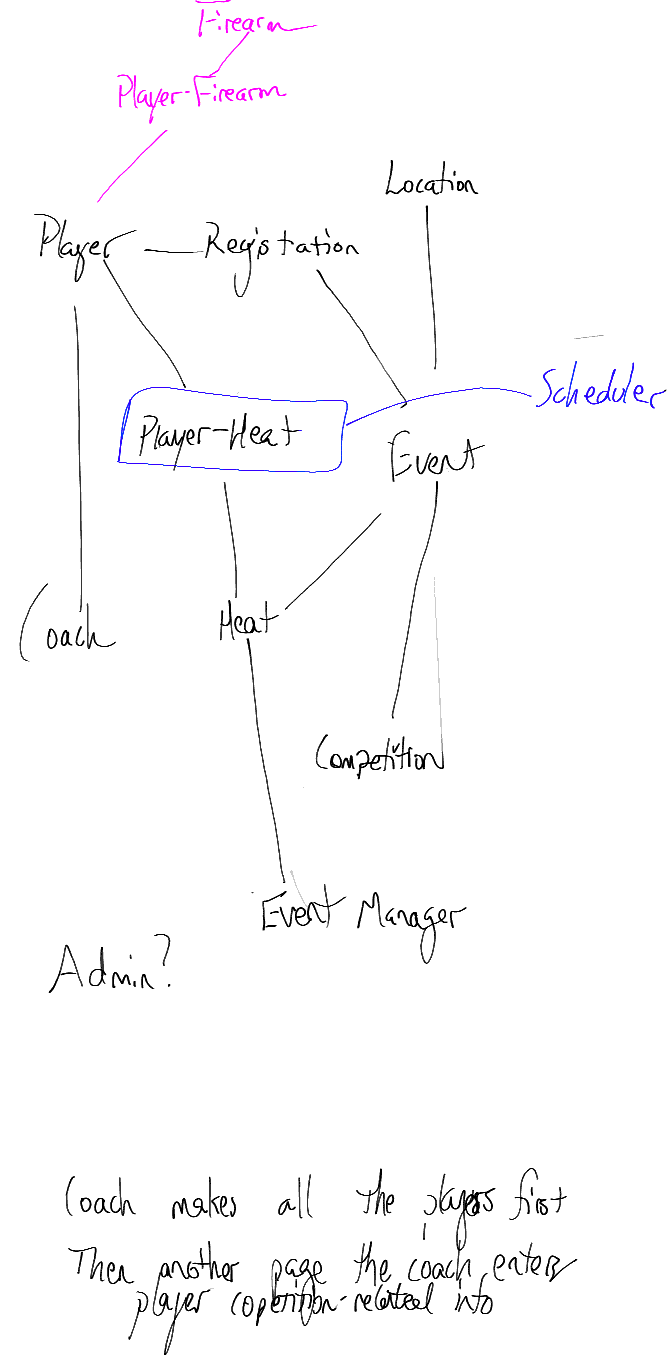 Firearm
Player-Firearm
Location
Player
Registation
Scheduler
Player-Heat
Event
Heat
Coach
Competition
Event Manager
Admin?
Coach makes all the players first
Then another page the coach enters
player copetition-related info